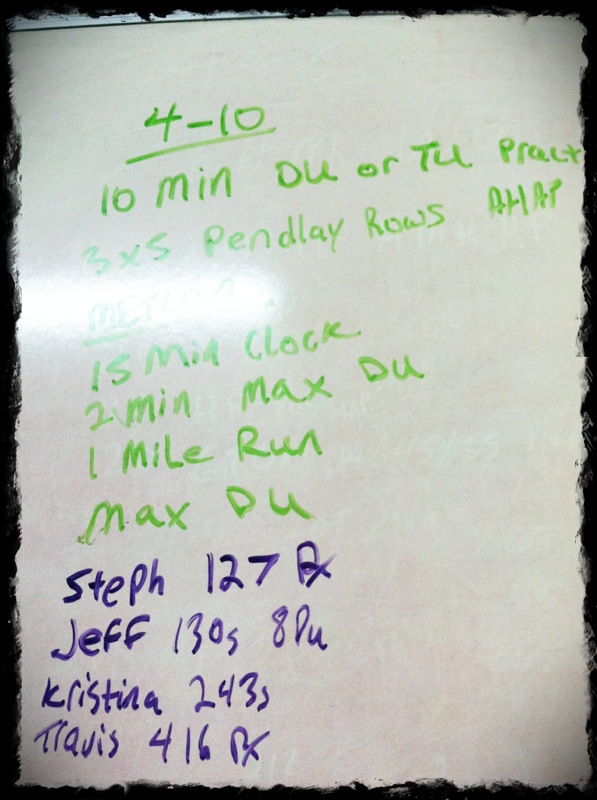 4-10
10 Min DU or TU Pract
3x5 Pendlay Rows AHAP
METCON:
15 Min Clock
2 min Max DU
1 Mile Run
Max DU
Steph 127 Rx
Jeff 130s 8Du
Kristina 243s
Travis 416 Rx